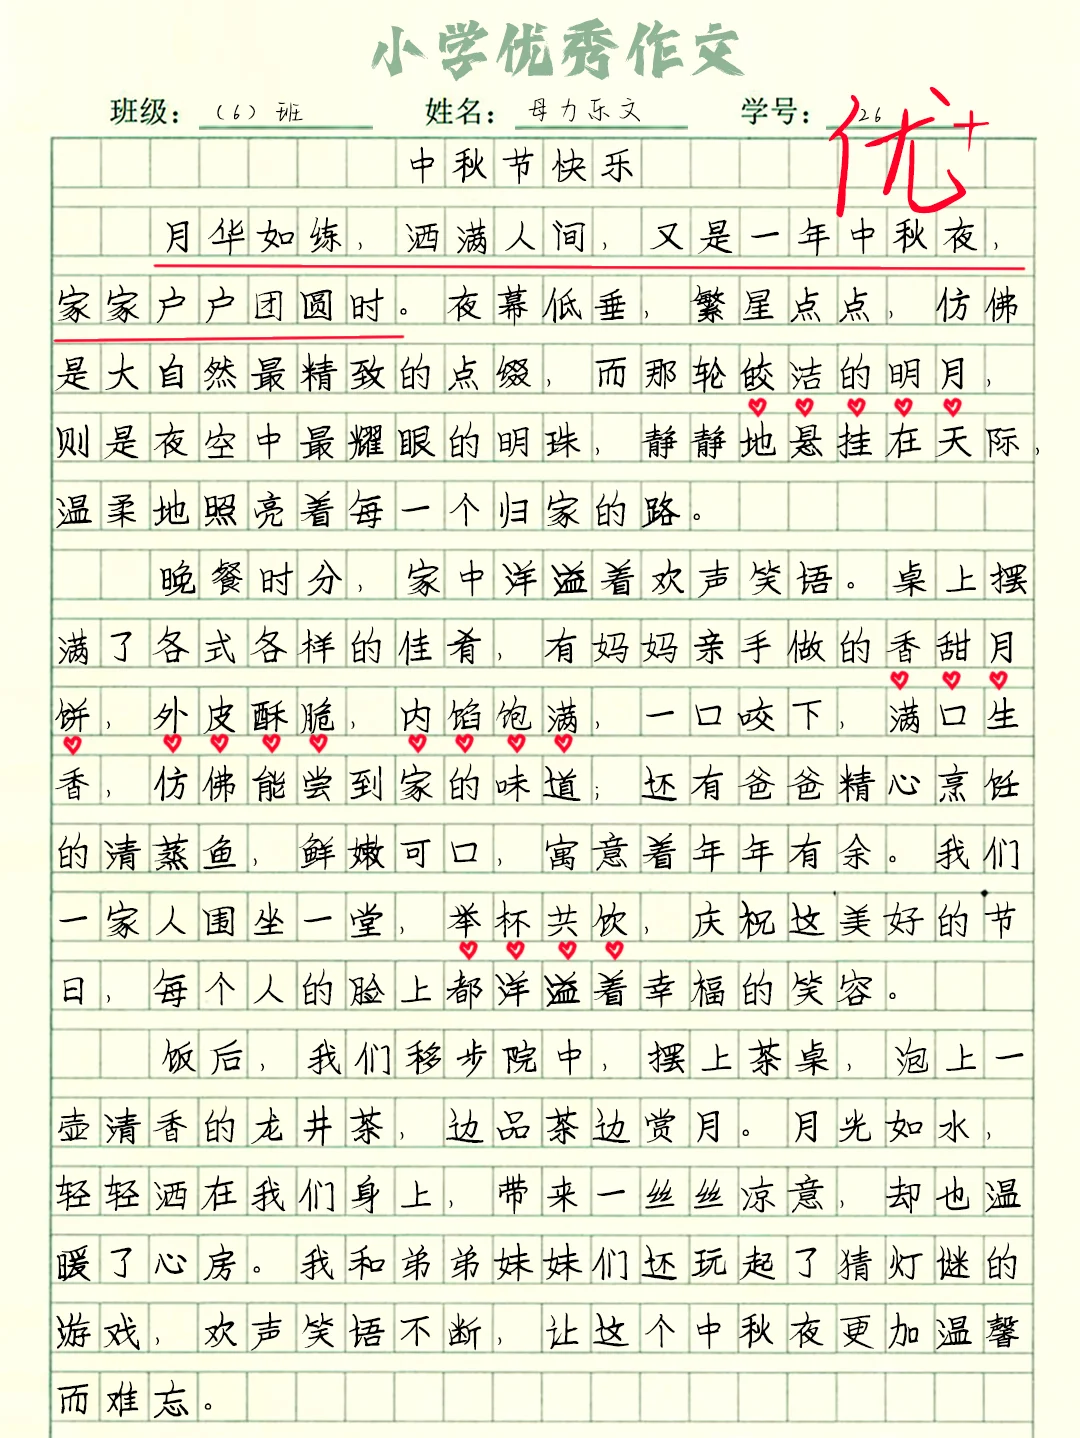 小学优秀作文
班级：（6）班 姓名：母力乐文 学号：26
优+
中秋节快乐
月华如练，洒满人间，又是一年中秋夜，
家家户户团圆时。夜幕低垂，繁星点点，仿佛
是大自然最精致的点缀，而那轮皎洁的明月，
则是夜空中最耀眼的明珠，静静地悬挂在天际，
温柔地照亮着每一个归家的路。
晚餐时分，家中洋溢着欢声笑语。桌上摆
满了各式各样的佳肴，有妈妈亲手做的香甜月
饼，外皮酥脆，内馅饱满，一口咬下，满口生
香，仿佛能尝到家的味道；还有爸爸精心烹饪
的清蒸鱼，鲜嫩可口，寓意着年年有余。我们
一家人围坐一堂，举杯共饮，庆祝这美好的节
日，每个人的脸上都洋溢着幸福的笑容。
饭后，我们移步院中，摆上茶桌，泡上一
壶清香的龙井茶，边品茶边赏月。月光如水，
轻轻洒在我们身上，带来一丝丝凉意，却也温
暖了心房。我和弟弟妹妹们还玩起了猜灯谜的
游戏，欢声笑语不断，让这个中秋夜更加温馨
而难忘。